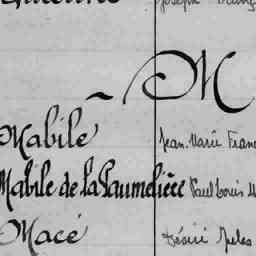 M
Mabile Jean. Marie
Mabile de la Paumelière Paul Louis
Macé Désiré Jules